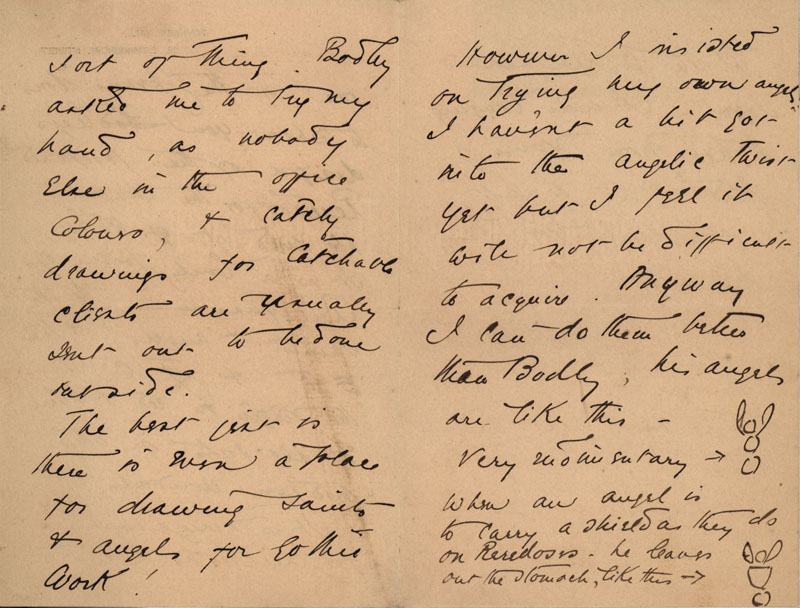 sort of thing. Bodley
asked me to try my
hand, as nobody
else in the office
colours, & catchy
drawings for catchable
clients are usually
sent out to be done
outside.
The best jest is
there is even a place
for drawing saints
& angels for Gothic
work!
However I insisted
on trying my own angels.
I haven't a bit got
into the angelic twist
yet but I feel it
will not be difficult
to acquire. Anyway
I can do them better
than Bodley, his angels
are like this –
very rudimentary →
when an angel is
to carry a shield as they do
on Reredoses – he leaves
out the stomach, like this →